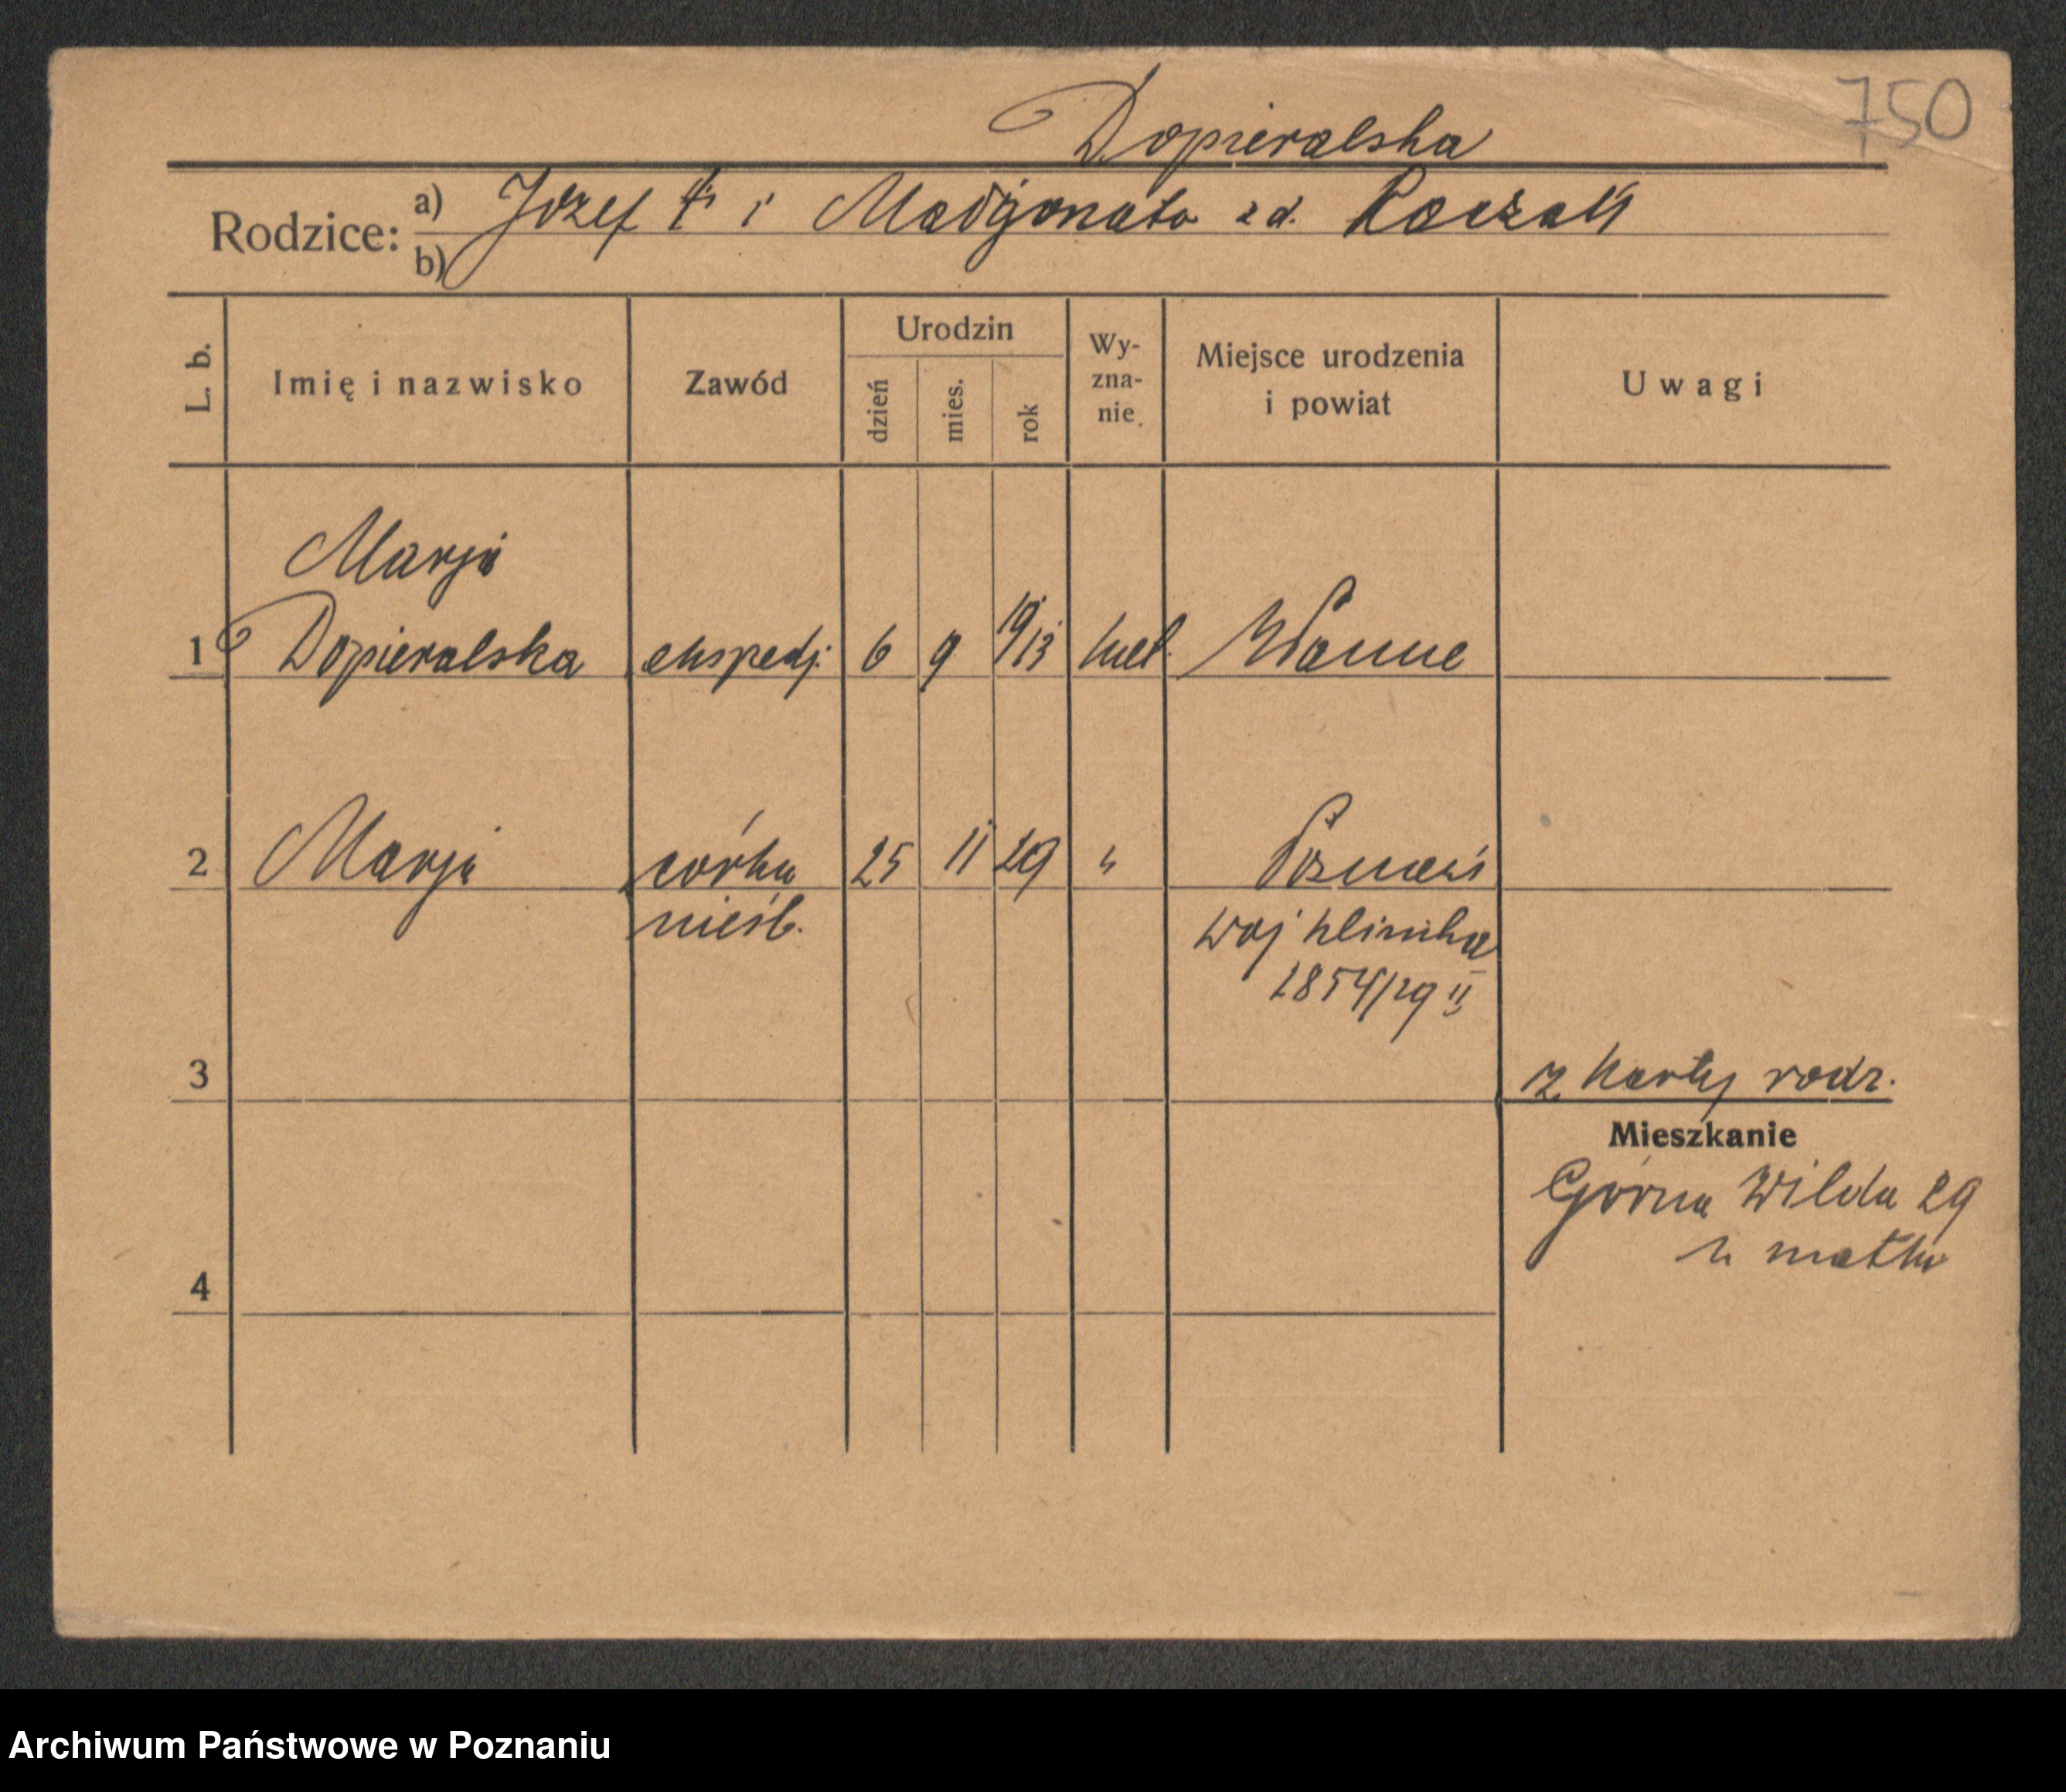 750
Dopieralska
Rodzice: a) Józef i Małgorzata z d. Kaczak
b)
L. b. Imię i nazwisko Zawód Urodzin dzień mies. rok Wy-zna-nie Miejsce urodzenia i powiat Uwagi
Marja
1 Dopieralska ekspedj. 6 9 1913 kat. Wanne
2 Marja córka 25 11 29 " Poznań
nieśl. woj klinika
1854/29 II
3 z karty rodz.
Mieszkanie
Górna Wilda 29
u matki
4
Archiwum Państwowe w Poznaniu